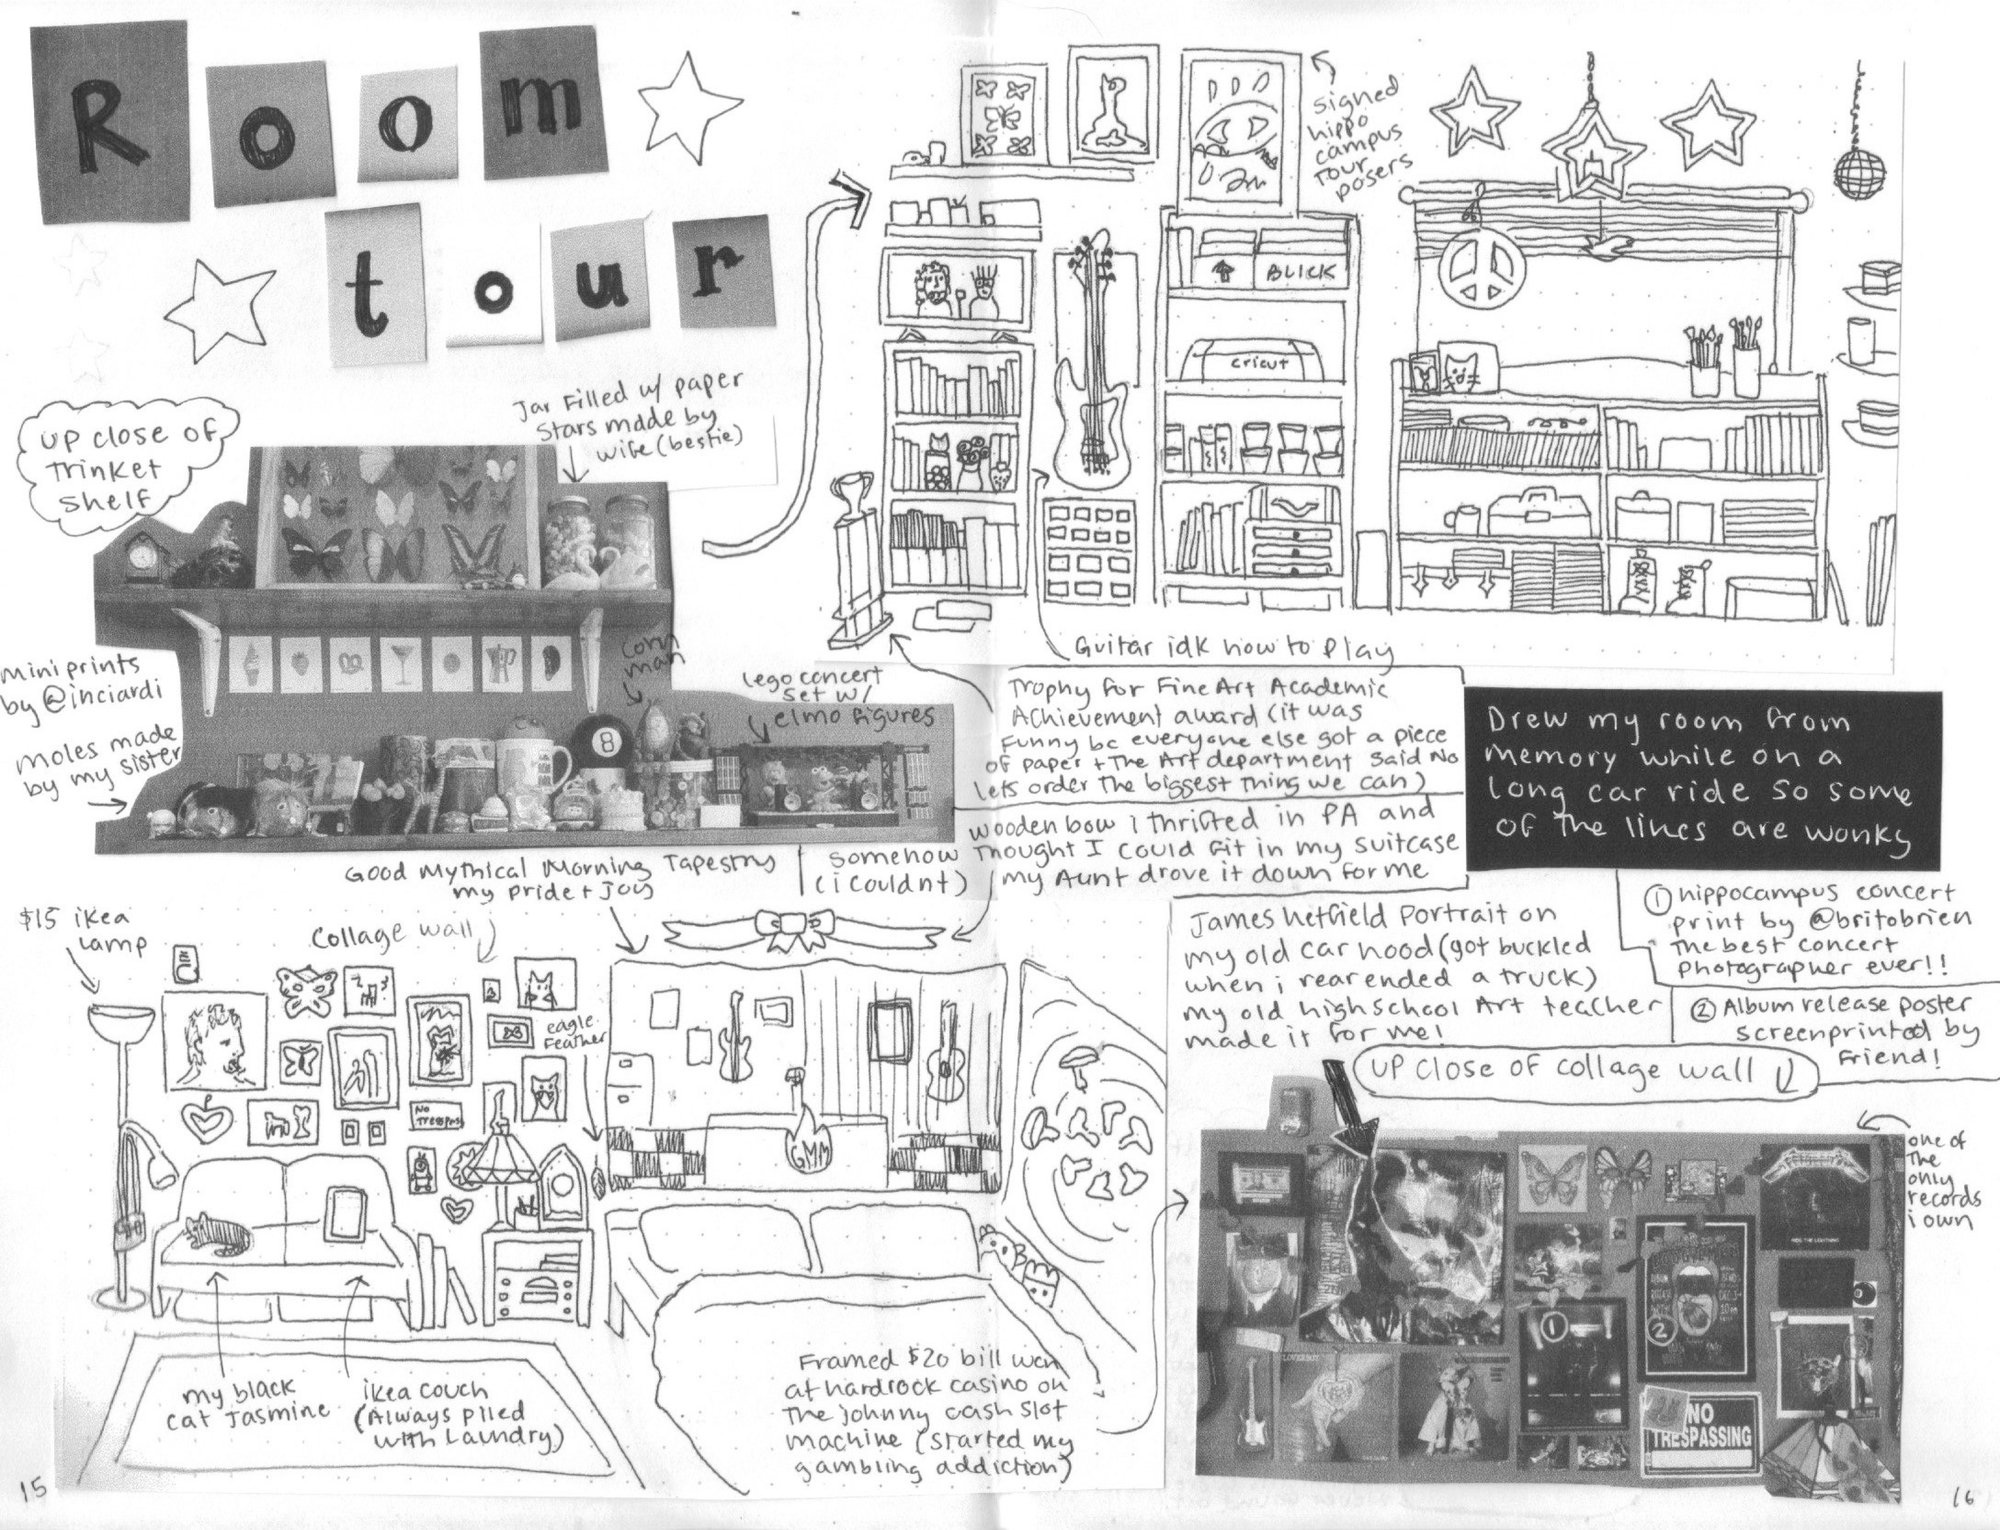 Room
tour
signed
hippo
campus
Tour
posers
BLICK
cricut
Jar Filled w/ paper
stars made by
wife (bestie)
UP close of
Trinket
Shelf
mini prints
by @inciardi
moles made
by my sister
corn
man
lego concert
set w/
elmo figures
8
Guitar idk how to play
Trophy for Fine Art Academic
Achievement award (it was
Funny bc everyone else got a piece
of paper + The Art department said No
lets order the biggest thing we can)
Drew my room from
memory while on a
long car ride so some
of the lines are wonky
wooden bow i thrifted in PA and
Thought I could fit in my suitcase
somehow
(i couldnt)
my Aunt drove it down for me
Good Mythical Morning Tapestry
my pride + joy
$15 ikea
Lamp
collage wall
eagle
Feather
NO
GMM
my black
cat Jasmine
ikea couch
(Always piled
with Laundry)
Framed $20 bill won
at hardrock casino on
The johnny cash slot
machine (started my
gambling addiction)
James hetfield portrait on
my old car hood (got buckled
when i rear ended a truck)
my old highschool Art teacher
made it for me!
① hippocampus concert
print by @britobrien
The best concert
photographer ever!!
② Album release poster
screenprinted by
Friend!
UP close of collage wall
one of
The
only
records
i own
RIDE THE LIGHTNING
LOVERBOY
1
2
NO
TRESPASSING
15
16